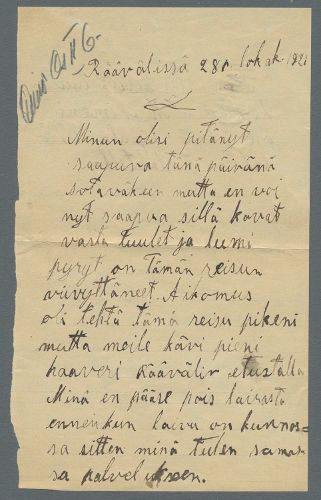 Räävälissä 28p. lok.k. 1921
Minun olisi pitänyt
saapuva tänä päivänä
sotaväkeen mutta en voi
nyt saapua sillä kovat
vasta tuulet ja lumi
pyryt on tämän reisun
viivyttäneet. Aikomus
oli tehtä tämä reisu pikeni
mutta meile kävi pieni
haaveri Räävälin etustalla
Minä en pääse pois laivasta
ennenkun laiva on kunnos-
sa sitten minä tulen samas-
sa palvelukseen.